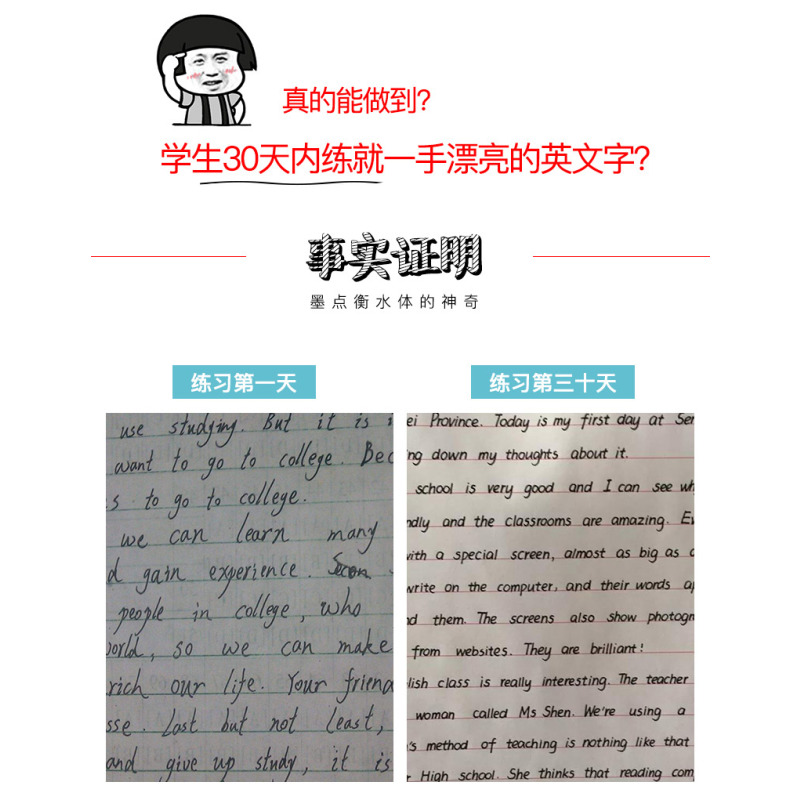 真的能做到?
学生30天内练就一手漂亮的英文字?
事实证明
墨点衡水体的神奇
练习第一天
use studying. But it is
want to go to college. Bec
s to go to college.
we can learn many
d gain experience.
people in college, who
world, so we can make
rich our life. Your friend
sse. Last but not least,
and give up study, it is
练习第三十天
ei Province. Today is my first day at Sen
ng down my thoughts about it.
school is very good and I can see wh
ndly and the classrooms are amazing. Ev
with a special screen, almost as big as a
write on the computer, and their words ap
nd them. The screens also show photogr
from websites. They are brilliant!
lish class is really interesting. The teacher
woman called Ms Shen. We're using a
's method of teaching is nothing like that
High school. She thinks that reading com